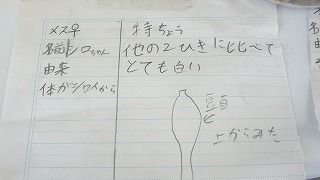 メス♀
名前シロちゃん
由来
体がシロイから
特ちょう
他の2ひきに比べて
とても白い
頭
上からみた